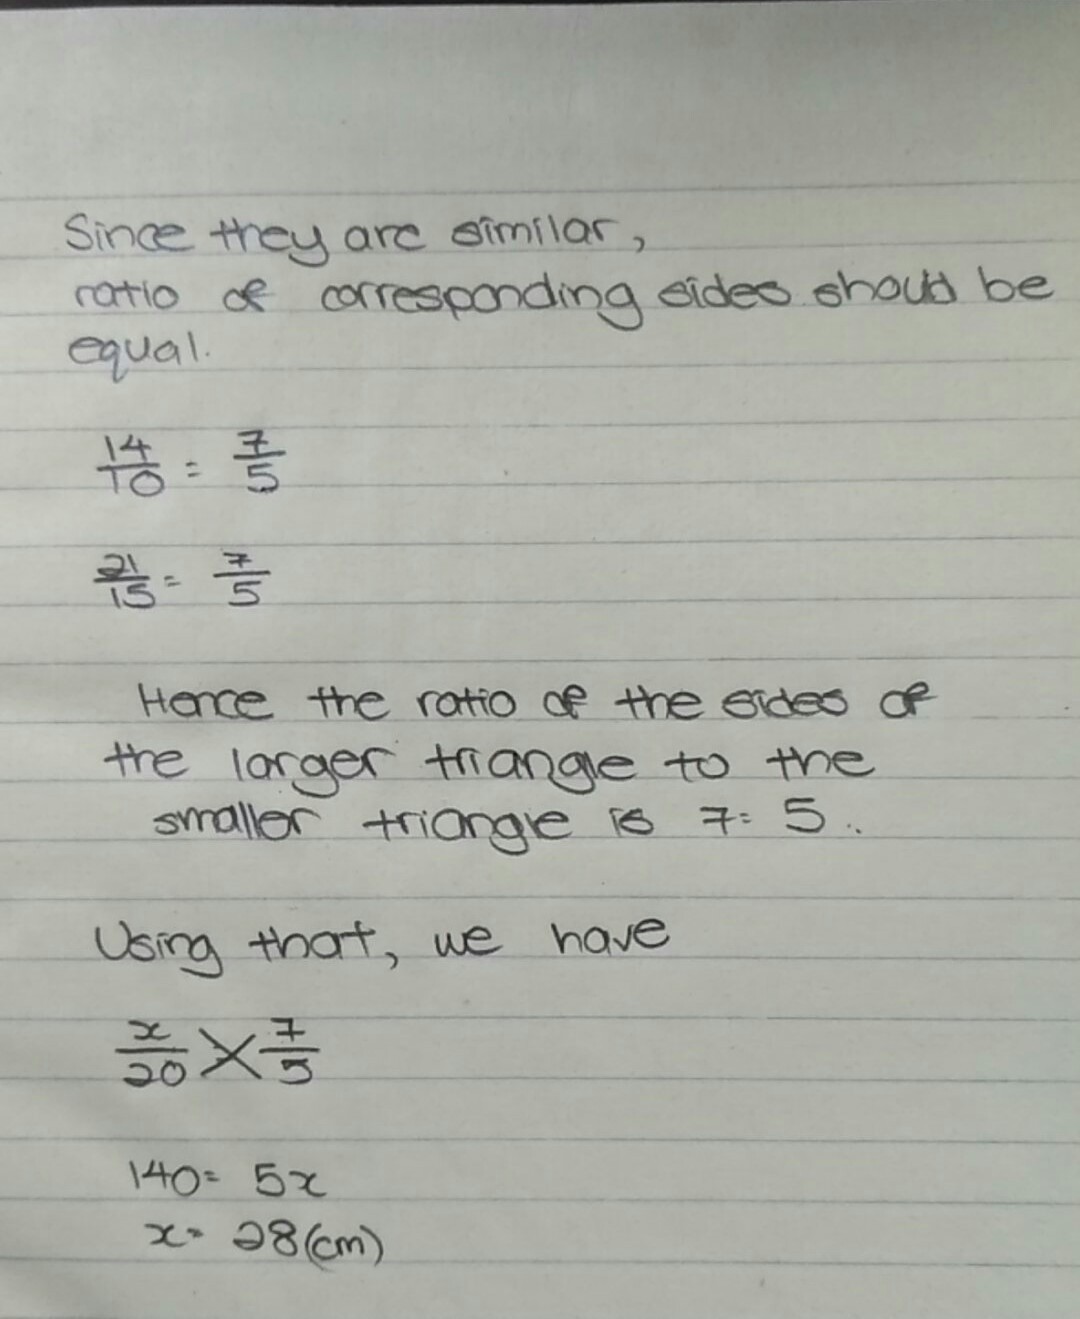 Since they are similar,
ratio of corresponding sides should be
equal.
14/10 = 7/5
21/15 = 7/5
Hence the ratio of the sides of
the larger triangle to the
smaller triangle is 7:5.
Using that, we have
x/20 × 7/5
140 = 5x
x = 28(cm)